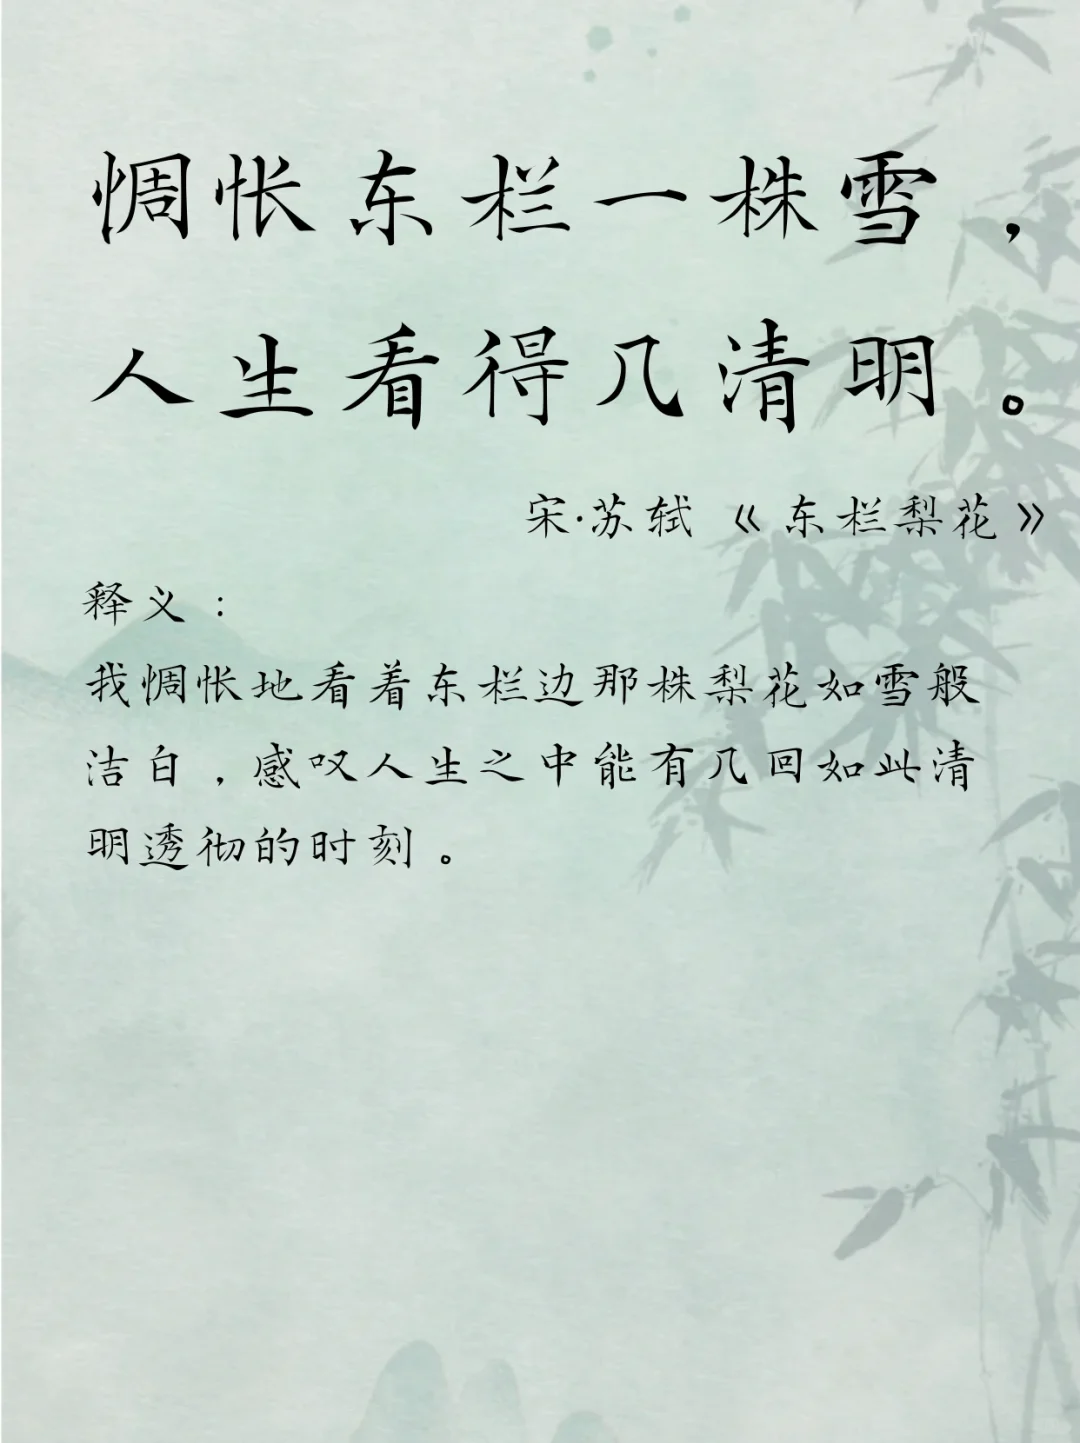 惆怅东栏一株雪，
人生看得几清明。
宋·苏轼《东栏梨花》
释义：
我惆怅地看着东栏边那株梨花如雪般
洁白，感叹人生之中能有几回如此清
明透彻的时刻。